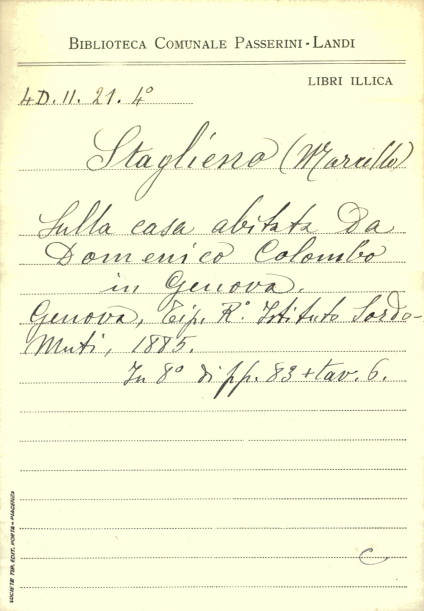 BIBLIOTECA COMUNALE PASSERINI-LANDI
LIBRI ILLICA
4D.II.21.4°
Staglieno (Marcello)
Sulla casa abitata da
Domenico Colombo
in Genova.
Genova, Tip. R.° Istituto Sordo-
Muti, 1885.
In 8° di pp. 83 + tav. 6.
C
SOCIETÀ TIP. EDIT. PORTA - PIACENZA